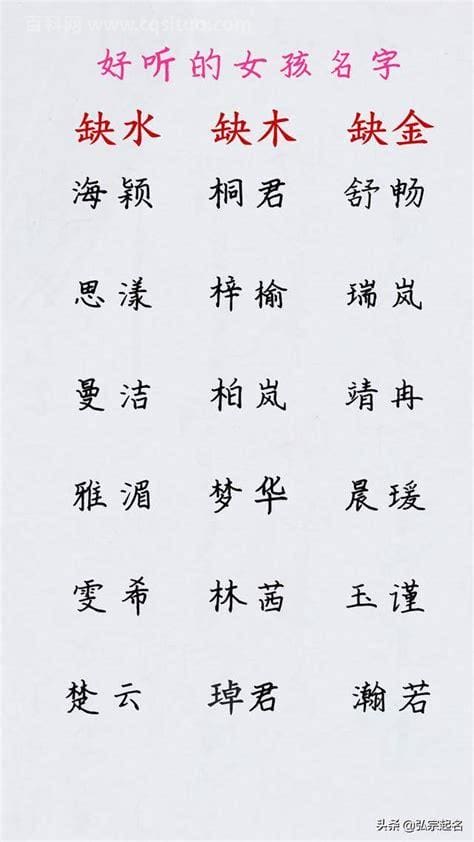 百科网 www.cqsltuo.com
好听的女孩名字
缺水 缺木 缺金
海颖 桐君 舒畅
思漾 梓榆 瑞岚
曼洁 柏岚 靖冉
雅湄 梦华 晨瑗
雯希 林茜 玉谨
楚云 琸君 瀚若
头条 @弘宗起名